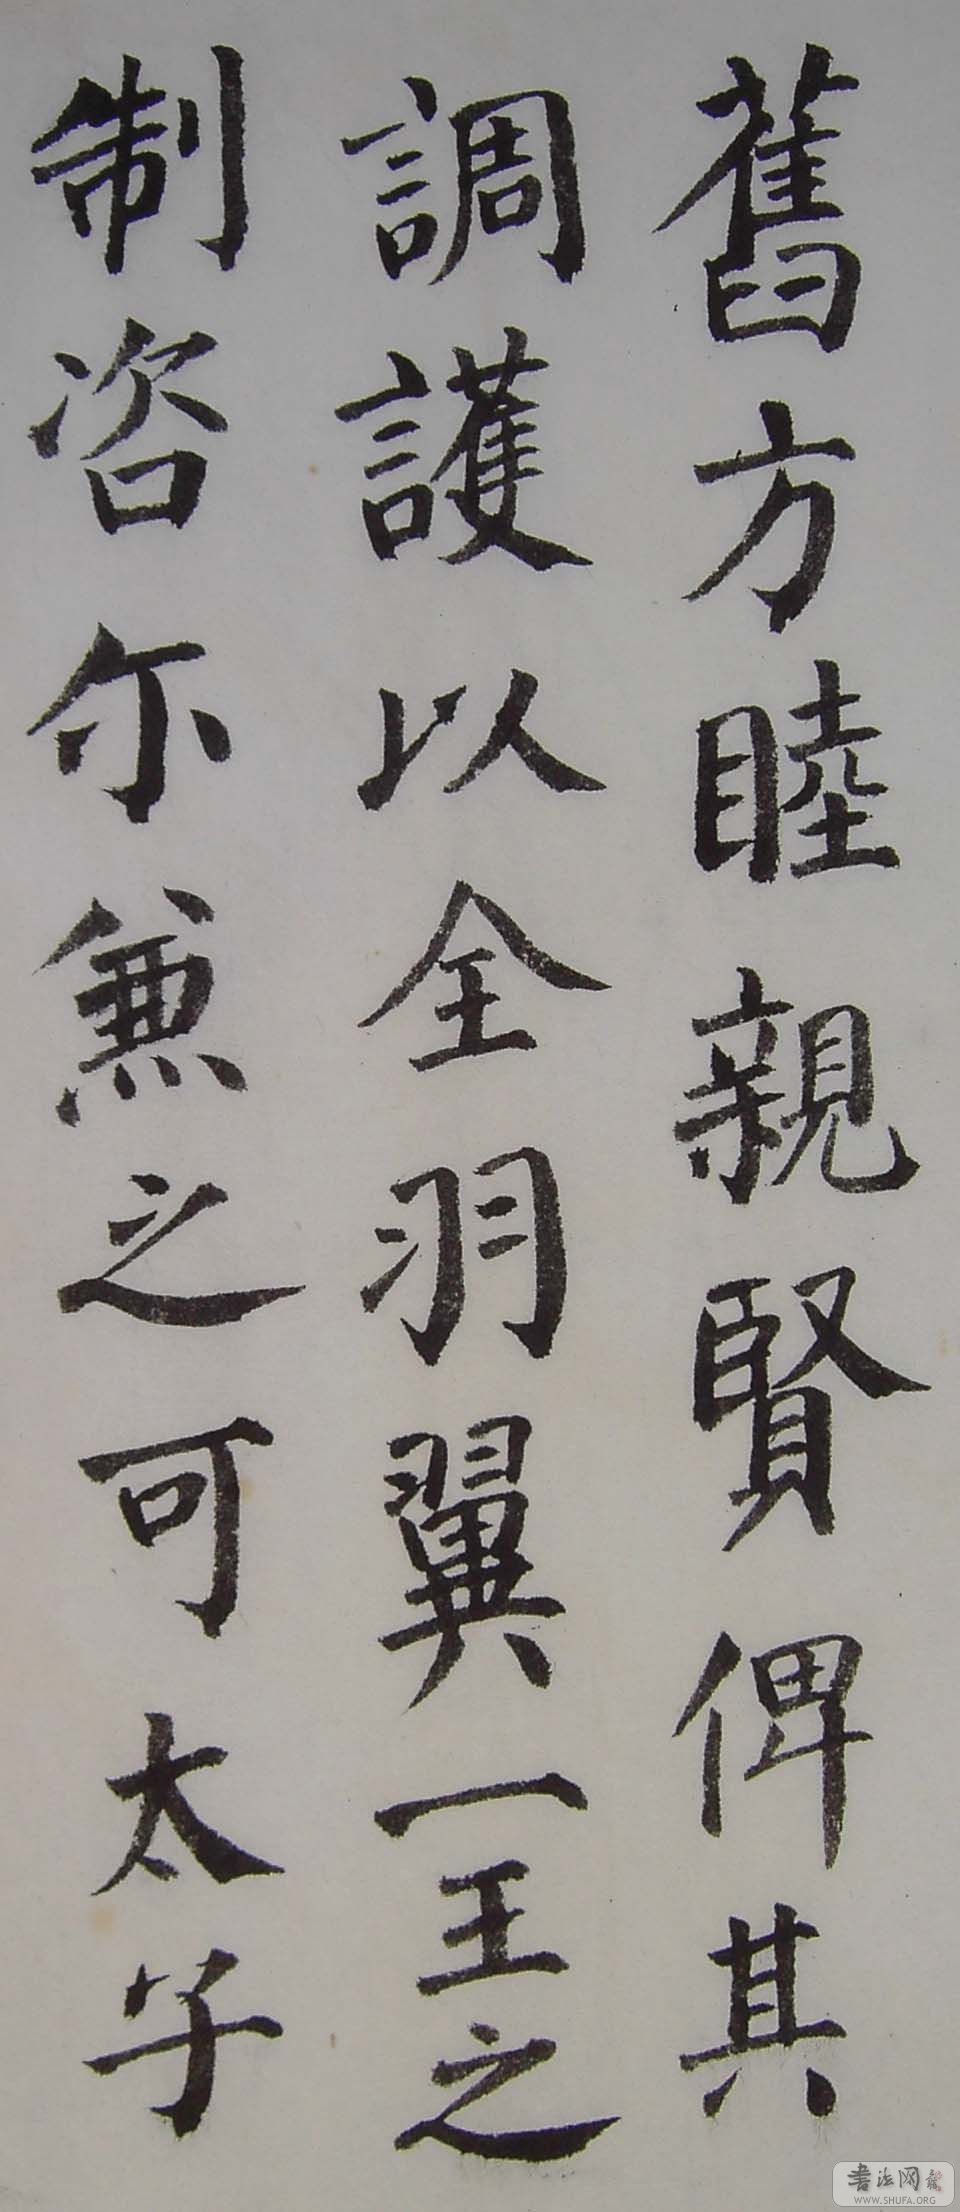 舊方睦親賢俾其
調護以全羽翼一王之
制咨尔兼之可太子
书法网
WWW.SHUFA.ORG